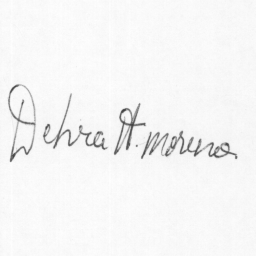 Debra H. Moreno.